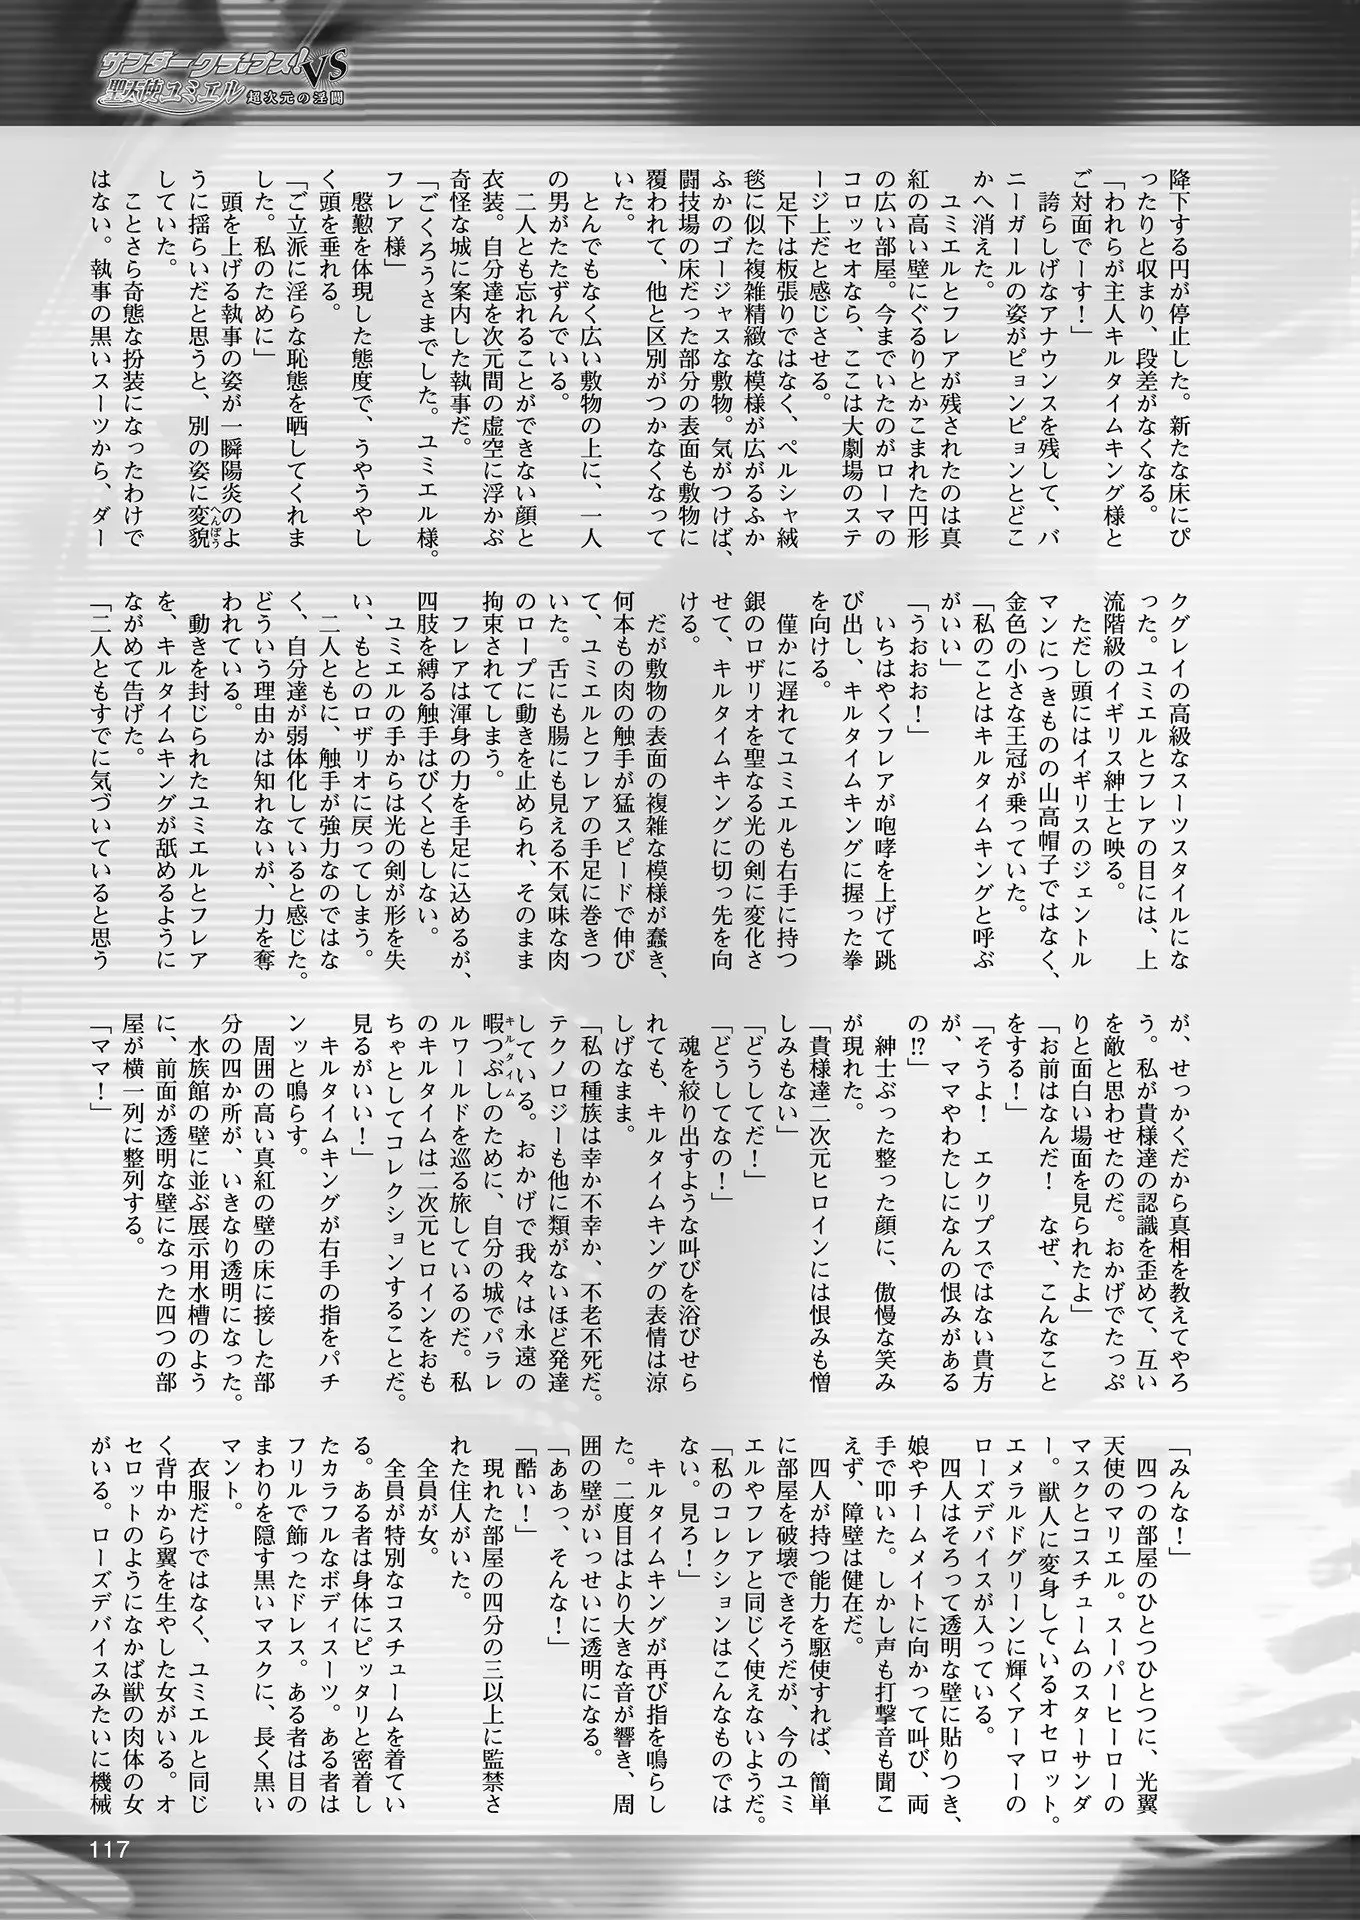 サンダークラップス!VS
聖天使ユミエル 超次元の淫闘
降下する円が停止した。新たな床にぴ
ったりと収まり、段差がなくなる。
「われらが主人キルタイムキング様と
ご対面でーす！」
誇らしげなアナウンスを残して、バ
ニーガールの姿がピョンピョンとどこ
かへ消えた。
ユミエルとフレアが残されたのは真
紅の高い壁にぐるりとかこまれた円形
の広い部屋。今までいたのがローマの
コロッセオなら、ここは大劇場のステ
ージ上だと感じさせる。
足下は板張りではなく、ペルシャ絨
毯に似た複雑精緻な模様が広がるふか
ふかのゴージャスな敷物。気がつけば、
闘技場の床だった部分の表面も敷物に
覆われて、他と区別がつかなくなって
いた。
とんでもなく広い敷物の上に、一人
の男がたたずんでいる。
二人とも忘れることができない顔と
衣装。自分達を次元間の虚空に浮かぶ
奇怪な城に案内した執事だ。
「ごくろうさまでした。ユミエル様。
フレア様」
慇懃を体現した態度で、うやうやし
く頭を垂れる。
「ご立派に淫らな恥態を晒してくれま
した。私のために」
頭を上げる執事の姿が一瞬陽炎のよ
うに揺らいだと思うと、別の姿に変貌へんぼう
していた。
ことさら奇態な扮装になったわけで
はない。執事の黒いスーツから、ダー
クグレイの高級なスーツスタイルにな
った。ユミエルとフレアの目には、上
流階級のイギリス紳士と映る。
ただし頭にはイギリスのジェントル
マンにつきものの山高帽子ではなく、
金色の小さな王冠が乗っていた。
「私のことはキルタイムキングと呼ぶ
がいい」
「うおおお！」
いちはやくフレアが咆哮を上げて跳
び出し、キルタイムキングに握った拳
を向ける。
僅かに遅れてユミエルも右手に持つ
銀のロザリオを聖なる光の剣に変化さ
せて、キルタイムキングに切っ先を向
ける。
だが敷物の表面の複雑な模様が蠢き、
何本もの肉の触手が猛スピードで伸び
て、ユミエルとフレアの手足に巻きつ
いた。舌にも腸にも見える不気味な肉
のロープに動きを止められ、そのまま
拘束されてしまう。
フレアは渾身の力を手足に込めるが、
四肢を縛る触手はびくともしない。
ユミエルの手からは光の剣が形を失
い、もとのロザリオに戻ってしまう。
二人ともに、触手が強力なのではな
く、自分達が弱体化していると感じた。
どういう理由かは知れないが、力を奪
われている。
動きを封じられたユミエルとフレア
を、キルタイムキングが舐めるように
ながめて告げた。
「二人ともすでに気づいていると思う
が、せっかくだから真相を教えてやろ
う。私が貴様達の認識を歪めて、互い
を敵と思わせたのだ。おかげでたっぷ
りと面白い場面を見られたよ」
「お前はなんだ！　なぜ、こんなこと
をする！」
「そうよ！　エクリプスではない貴方
が、ママやわたしになんの恨みがある
の!?」
紳士ぶった整った顔に、傲慢な笑み
が現れた。
「貴様達二次元ヒロインには恨みも憎
しみもない」
「どうしてだ！」
「どうしてなの！」
魂を絞り出すような叫びを浴びせら
れても、キルタイムキングの表情は涼
しげなまま。
「私の種族は幸か不幸か、不老不死だ。
テクノロジーも他に類がないほど発達
している。おかげで我々は永遠の
暇つぶしキルタイムのために、自分の城でパラレ
ルワールドを巡る旅しているのだ。私
のキルタイムは二次元ヒロインをおも
ちゃとしてコレクションすることだ。
見るがいい！」
キルタイムキングが右手の指をパチ
ンッと鳴らす。
周囲の高い真紅の壁の床に接した部
分の四か所が、いきなり透明になった。
水族館の壁に並ぶ展示用水槽のよう
に、前面が透明な壁になった四つの部
屋が横一列に整列する。
「ママ！」
「みんな！」
四つの部屋のひとつひとつに、光翼
天使のマリエル。スーパーヒーローの
マスクとコスチュームのスターサンダ
ー。獣人に変身しているオセロット。
エメラルドグリーンに輝くアーマーの
ローズデバイスが入っている。
四人はそろって透明な壁に貼りつき、
娘やチームメイトに向かって叫び、両
手で叩いた。しかし声も打撃音も聞こ
えず、障壁は健在だ。
四人が持つ能力を駆使すれば、簡単
に部屋を破壊できそうだが、今のユミ
エルやフレアと同じく使えないようだ。
「私のコレクションはこんなものでは
ない。見ろ！」
キルタイムキングが再び指を鳴らし
た。二度目はより大きな音が響き、周
囲の壁がいっせいに透明になる。
「ああっ、そんな！」
「酷い！」
現れた部屋の四分の三以上に監禁さ
れた住人がいた。
全員が女。
全員が特別なコスチュームを着てい
る。ある者は身体にピッタリと密着し
たカラフルなボディスーツ。ある者は
フリルで飾ったドレス。ある者は目の
まわりを隠す黒いマスクに、長く黒い
マント。
衣服だけではなく、ユミエルと同じ
く背中から翼を生やした女がいる。オ
セロットのようになかば獣の肉体の女
がいる。ローズデバイスみたいに機械
117